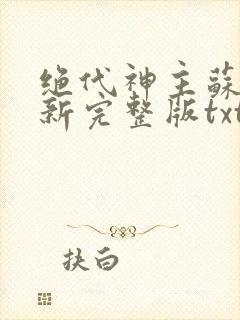 绝代神主蘇
新完整版txt
扶白